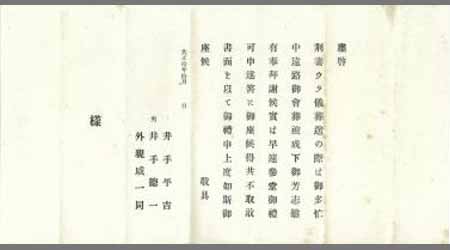 肅啓
荊妻ウタ儀葬送の際は御多忙
中遠路御會葬被成下御芳志難
有奉拜謝候實は早速參堂御禮
可申述筈に御座候得共不取敢
書面を以て御禮申上度如斯御
座候 敬具
大正 年拾月 日
井手平吉
男 井手德一
外親戚一同
樣